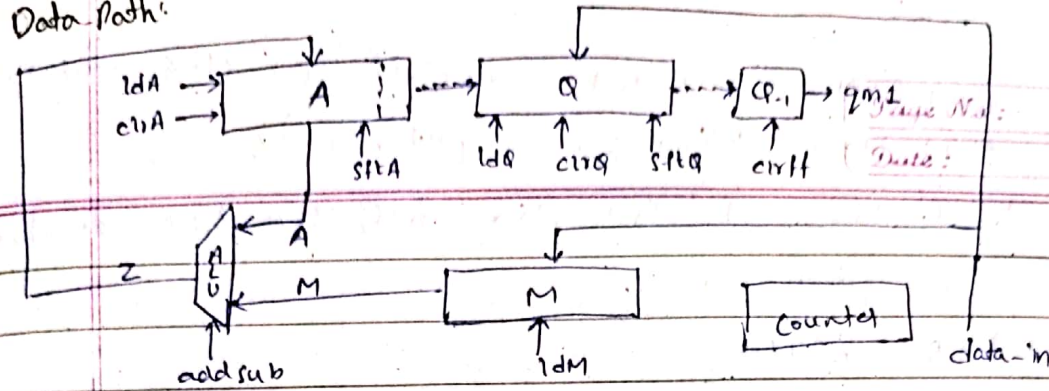 Data Path:
ldA
clrA
A
Q
Q-1
qm1
Page No:
Date:
sftA
ldQ
clrQ
sftQ
clrff
A
Z
ALU
M
M
Counter
addsub
ldM
data-in